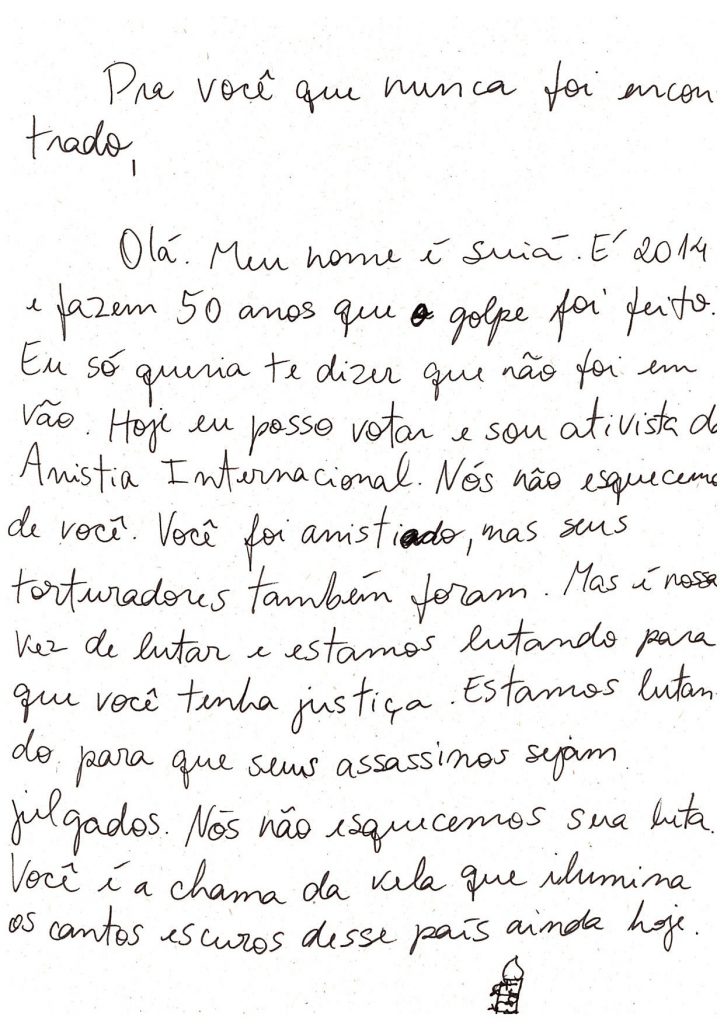 Pra você que nunca foi encon
trado,
Olá. Meu nome é Suiá. É 2014
e fazem 50 anos que o golpe foi feito.
Eu só queria te dizer que não foi em
vão. Hoje eu posso votar e sou ativista da
Anistia Internacional. Nós não esquecemo
de você. Você foi anistiado, mas seus
torturadores também foram. Mas é nossa
vez de lutar e estamos lutando para
que você tenha justiça. Estamos lutan
do para que seus assassinos sejam
julgados. Nós não esquecemos sua luta.
Você é a chama da vela que ilumina
os cantos escuros desse país ainda hoje.